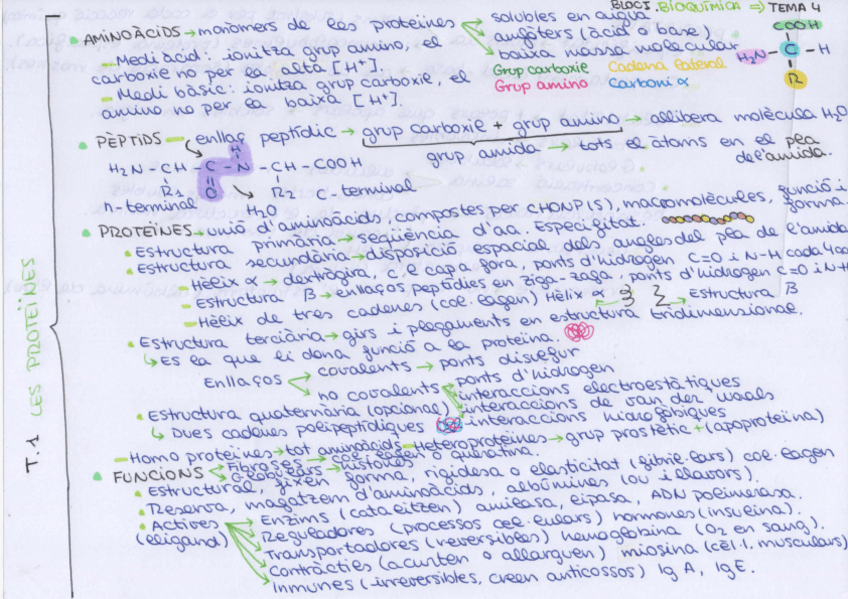 BLOC I. BIOQUÍMICA ⇒ TEMA 4
• AMINOÀCIDS → monòmers de les proteïnes
solubles en aigua
amfòters (àcid o base)
baixa massa molecular
- Medi àcid: ionitza grup amino, el
carboxic no per la alta [H⁺].
- Medi bàsic: ionitza grup carboxic, el
amino no per la baixa [H⁺].
Grup carboxic Cadena lateral
Grup amino Carboni α
COOH
H₂N - C - H
R
• PÈPTIDS — enllaç peptídic → grup carboxic + grup amino → allibera molècula H₂O
grup amida → tots el àtoms en el pla
de l'amida.
H₂N - CH - C - N - CH - COOH
H
O
R₁ R₂
n-terminal H₂O C-terminal
• PROTEÏNES → unió d'aminoàcids, compostes per CHONP(S), macromolècules, funció i
forma.
• Estructura primària → seqüència d'aa. Especificitat.
• Estructura secundària → disposició espacial dels angles del pla de l'amida
- Hèlix α → dextrògira, cap a fora, ponts d'hidrogen C=O i N-H cada 4aa
- Estructura β → enllaços peptídics en ziga-zaga, ponts d'hidrogen C=O i N-H
- Hèlix de tres cadenes (col·lagen) Hèlix α Estructura β
• Estructura terciària → girs i plegaments en estructura tridimensional.
↳ Es la que li dona funció a la proteïna.
Enllaços
covalents → ponts disulfur
no covalents
ponts d'hidrogen
interaccions electroestàtiques
interaccions de van der waals
interaccions hidrofòbiques
• Estructura quaternària (opcional)
↳ Dues cadenes polipeptídiques
- Homoproteïnes → tot aminoàcids - Heteroproteïnes → grup prostètic + (apoproteïna)
Fibroses → col·lagen o queratina.
Globulars → histones
• FUNCIONS
• Estructural, fixen forma, rigidesa o elasticitat (fibril·lars) col·lagen
• Reserva, magatzem d'aminoàcids, albúmines (ou i llavors).
• Actives
(lligand)
Enzims (catalitzen) amilasa, lipasa, ADN polimerasa.
Reguladores (processos cel·lulars) hormones (insulina).
Transportadores (reversibles) hemoglobina (O₂ en sang).
Contràctils (acurten o allarguen) miosina (cèl·l. musculars)
Inmunes (irreversibles, creen anticossos) Ig A, Ig E.
T.1 LES PROTEÏNES